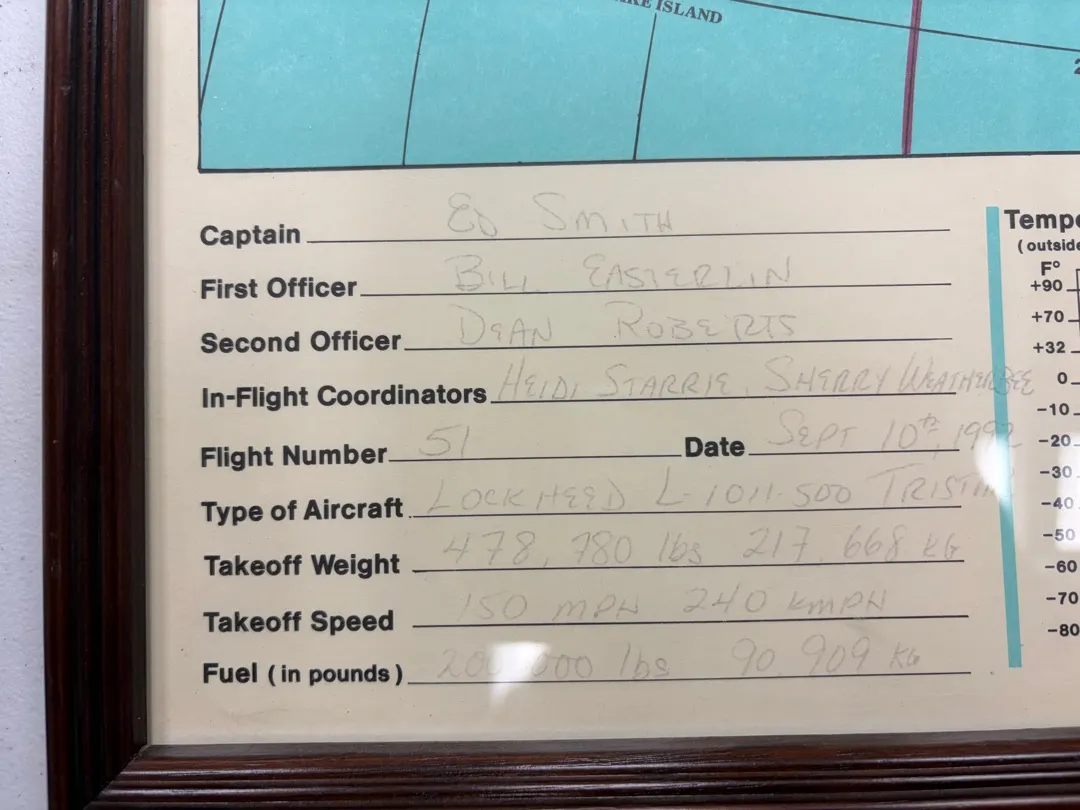 ISLAND
2
Captain ED SMITH
First Officer BILL EASTERLIN
Second Officer DEAN ROBERTS
In-Flight Coordinators HEIDI STARRIE, SHERRY WEATHERBEE
Flight Number 51 Date SEPT 10th, 1992
Type of Aircraft LOCKHEED L-1011-500 TRISTAR
Takeoff Weight 478,780 lbs 217,668 KG
Takeoff Speed 150 MPH 240 KMPH
Fuel (in pounds) 200,000 lbs 90,909 KG
(outside
F°
+90
+70
+32
0
-10
-20
-30
-40
-50
-60
-70
-80